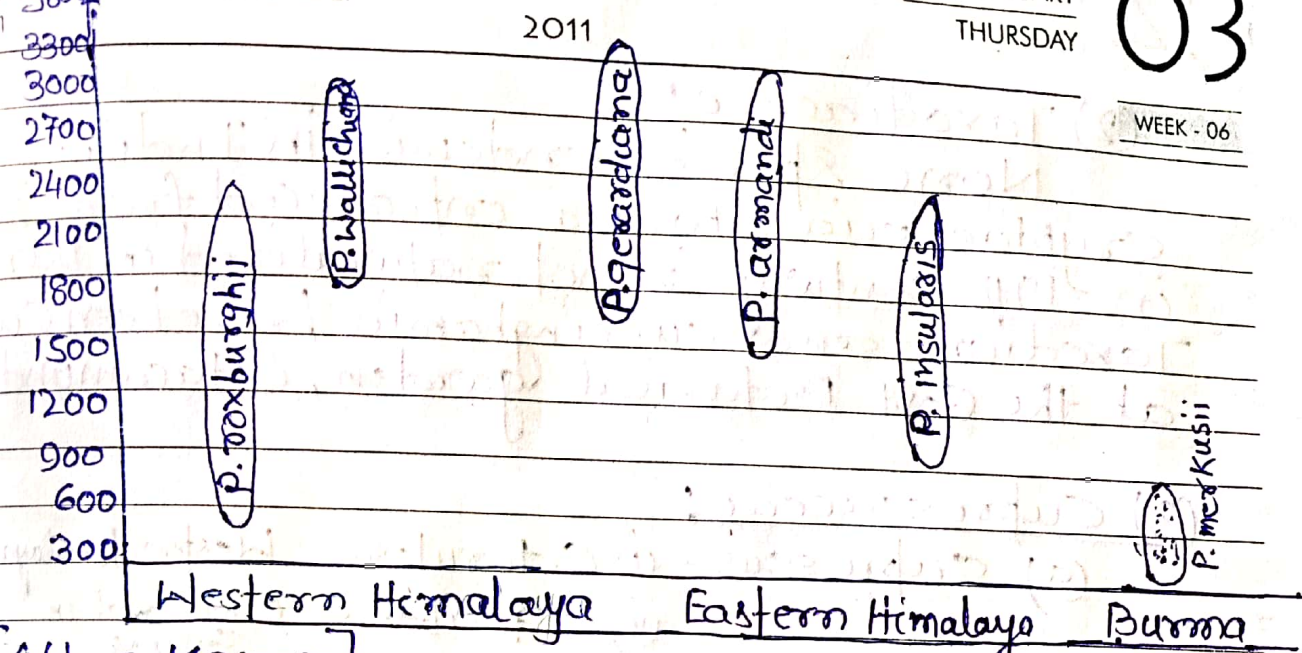 2011
THURSDAY 03
WEEK - 06
3300
3000
2700
2400
2100
1800
1500
1200
900
600
300
P. roxburghii
P. Wallichiana
P. gerardiana
P. armandi
P. insularis
P. merkusii
Western Himalaya Eastern Himalaya Burma